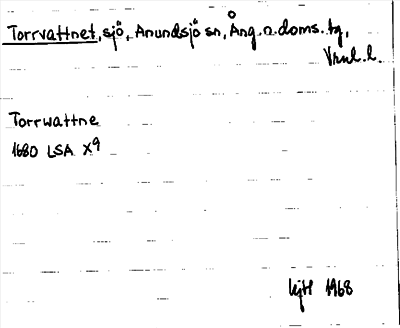 Torrvattnet, sjö, Anundsjö sn, Ång. n. doms. tg,
Vnrl. l.
Torrwattne
1680 LSA X9
1968